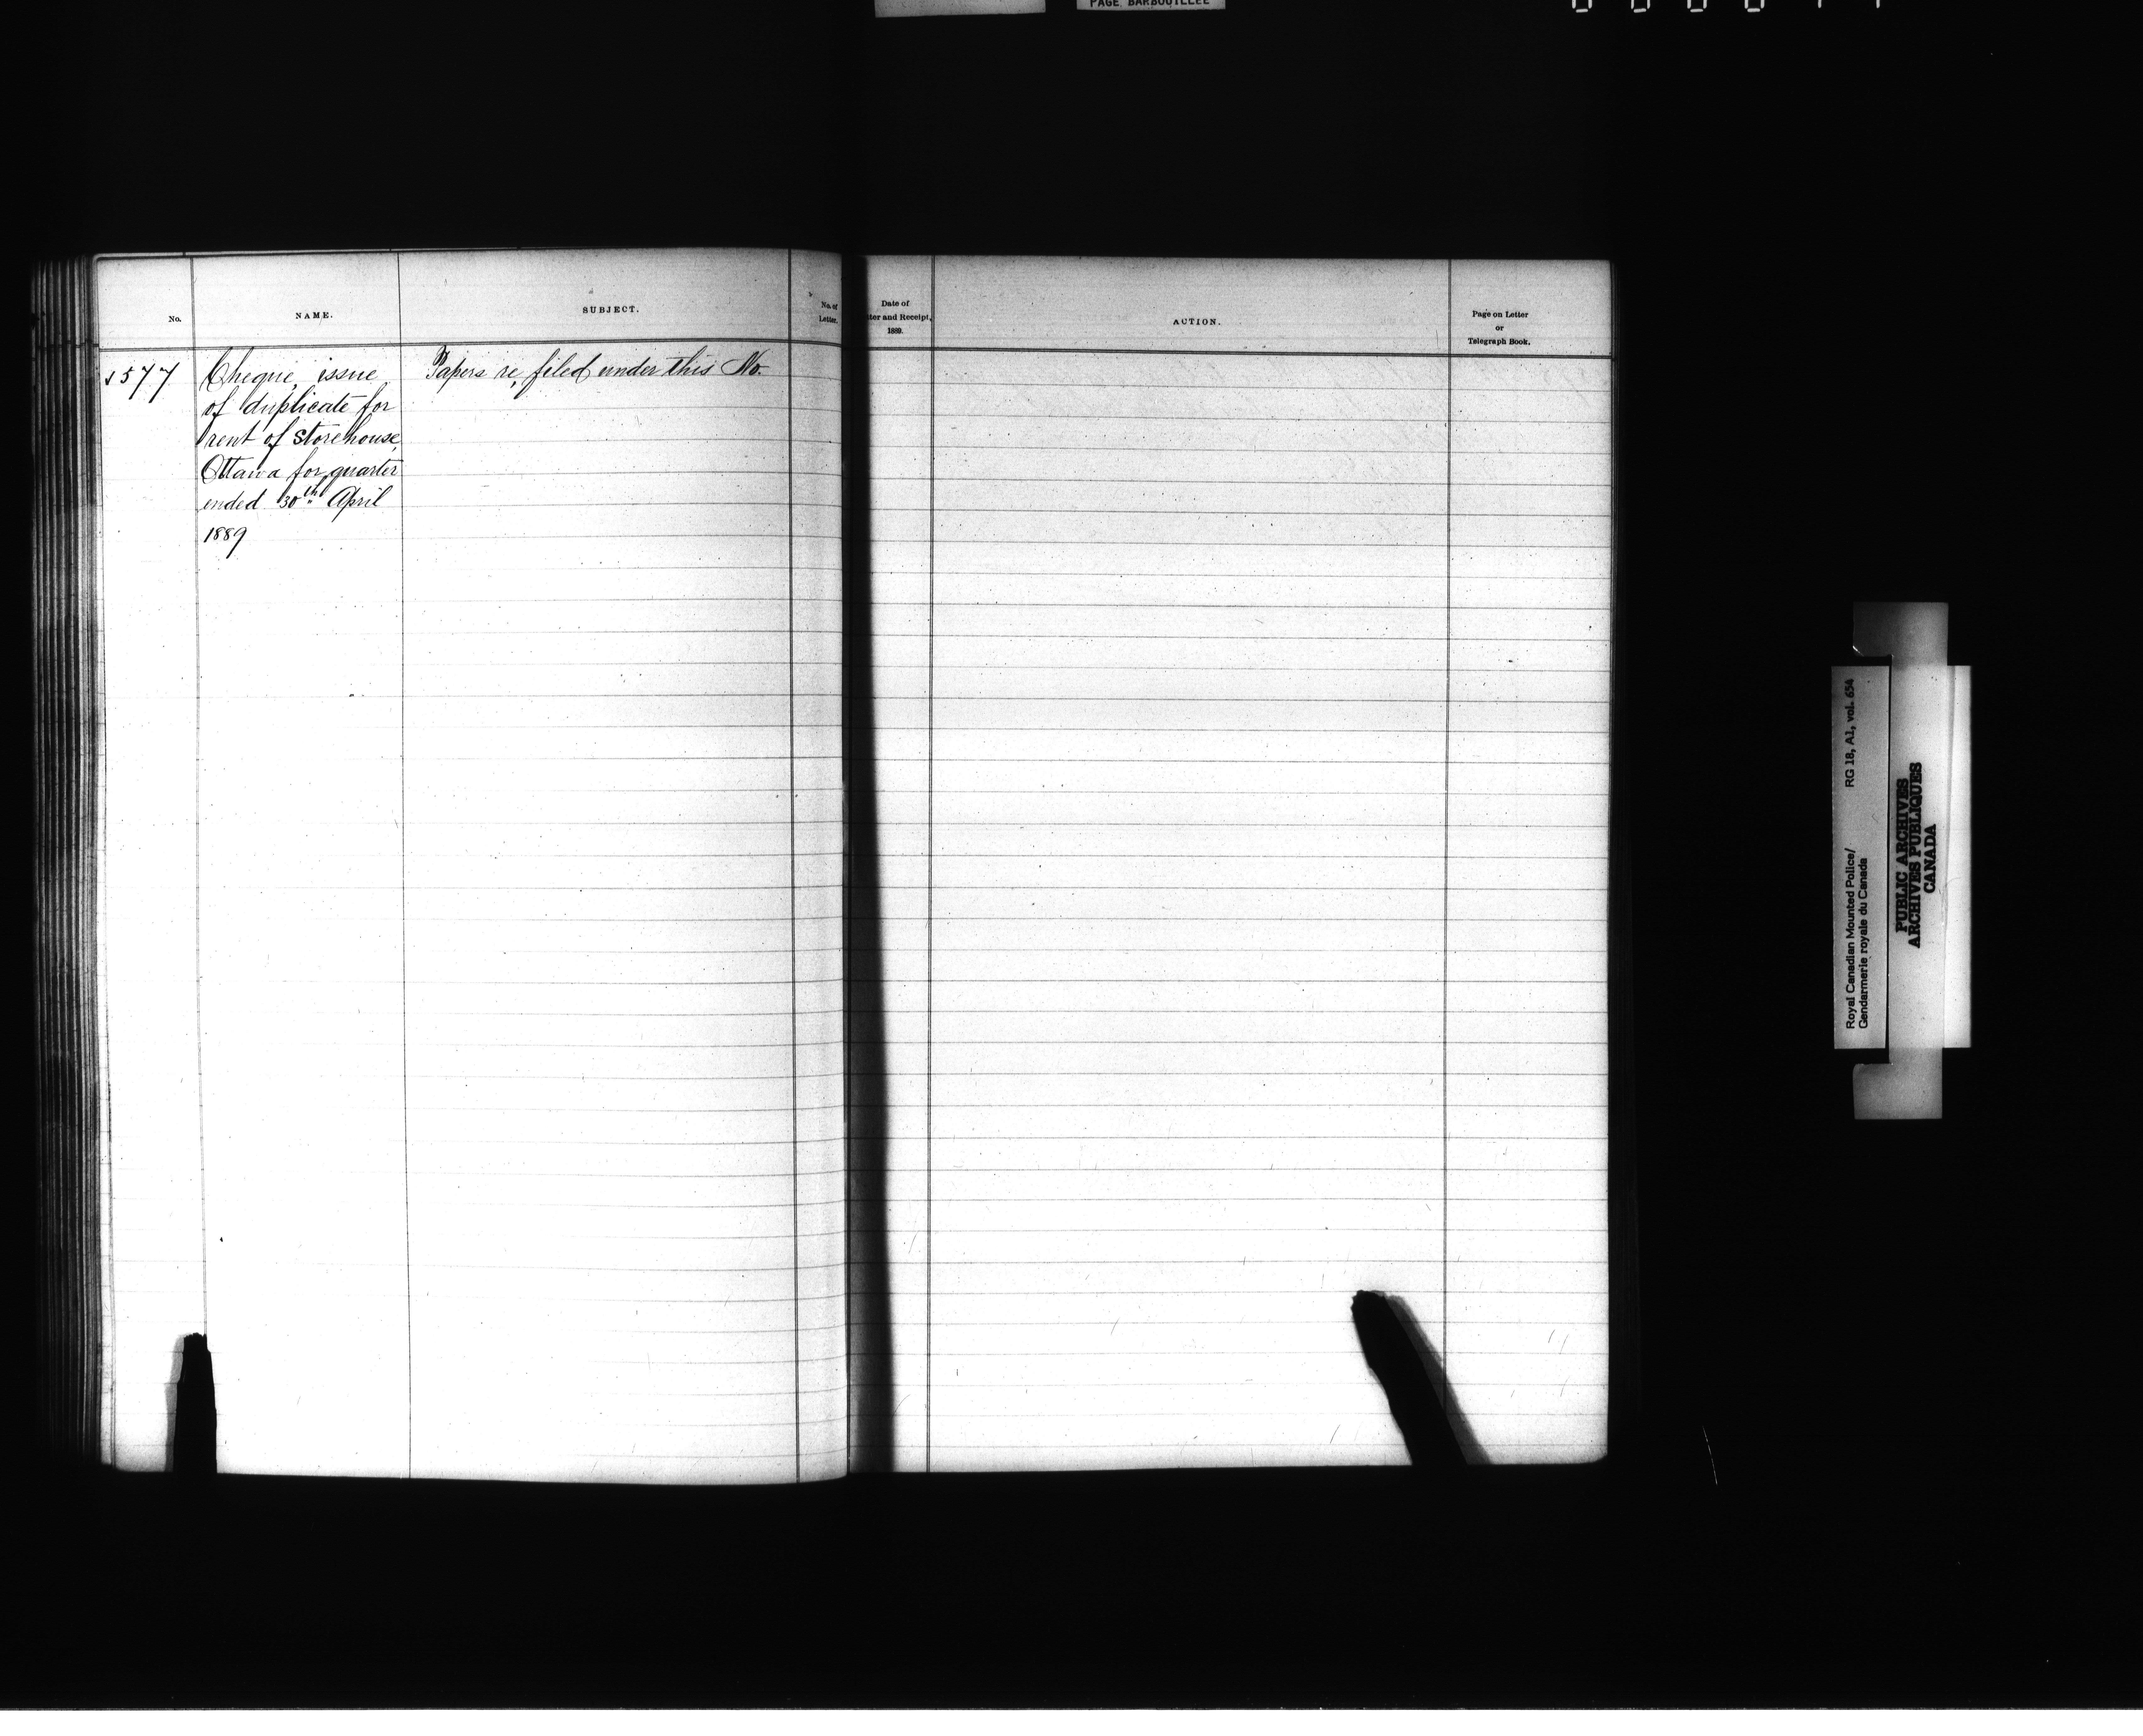 PAGE BARBOUILLEE
No.
NAME.
SUBJECT.
No. of
Letter.
Date of
ter and Receipt,
1889.
ACTION.
Page on Letter
or
Telegraph Book.
577
Cheque, issue
of duplicate for
rent of Storehouse,
Ottawa for quarter
ended 30th April
1889
Papers re, filed under this No.
Royal Canadian Mounted Police/ RG 18, A1, vol. 654
Gendarmerie royale du Canada
PUBLIC ARCHIVES
ARCHIVES PUBLIQUES
CANADA